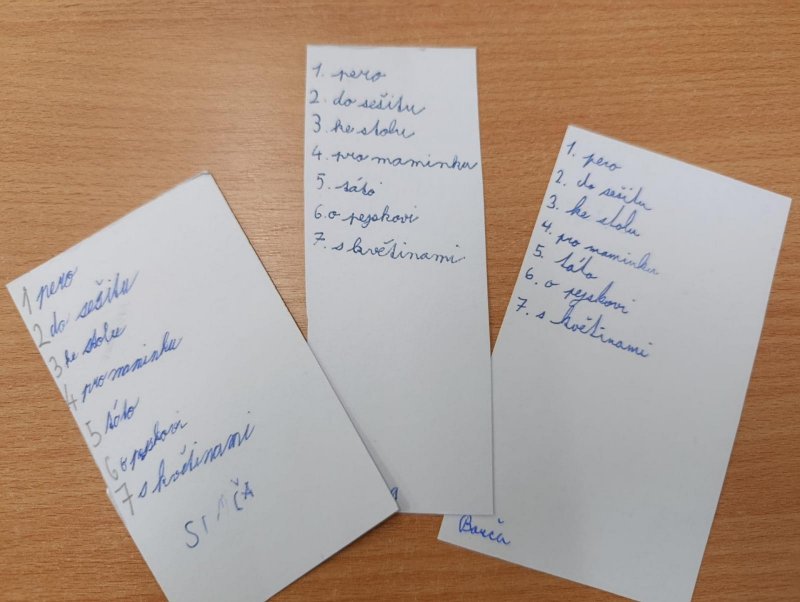 1 pero
2 do sešitu
3 ke stolu
4 pro maminku
5 táto
6 o pejskovi
7 s květinami
SIMČA
1. pero
2. do sešitu
3. ke stolu
4. pro maminku
5. táto
6. o pejskovi
7. s květinami
1. pero
2. do sešitu
3. ke stolu
4. pro maminku
5. táto
6. o pejskovi
7. s květinami
Barča